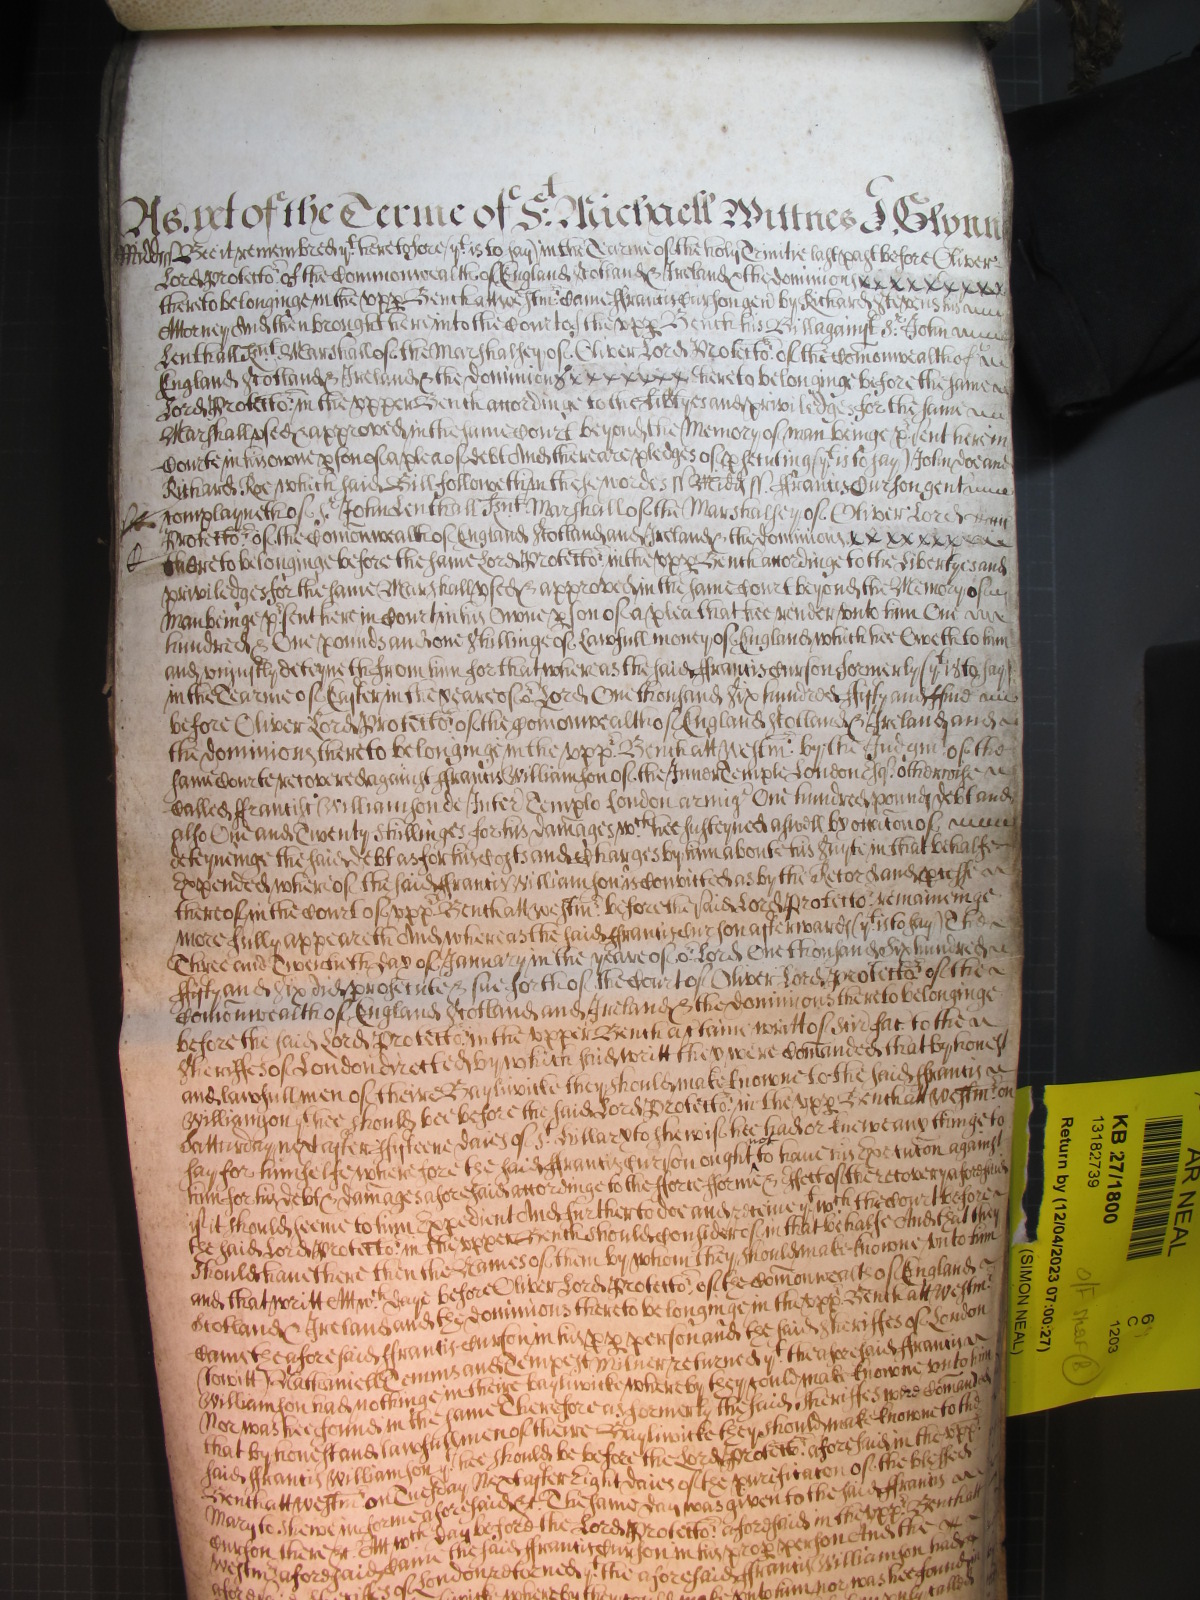 As yet of the Terme of St. Michaell Wittnes J Glynn
Midds ss Be it remembred yt heretofore (yt is to say) in the Tearme of the holy Trinitie last past before Oliver
Lord Protector of the Commonwealth of England Scotland & Ireland & the dominions xxxxxxxxx
thereto belonginge in the upper Bench att Westmr Came ffrancis Curson gen by Richard Stevens his
Attorney And then brought here into the Court of the upper Bench his Bill against Sr John
Lenthall Knt Marshall of the Marshalsey of Oliver Lord Protector of the Comonwealth of
England Scotland & Ireland & the dominions xxxxxxx thereto belonginge before the same
Lord Protector in the upper Bench accordinge to the libtyes and priviledges for the same
Marshall used & approved in the same Court beyond the Memory of man beinge psent here in
Courte in his owne pson of a plea of debt And there are pledges of psecuting (yt is to say) John Doe and
Richard Roe which said Bill followeth in these wordes ss Midds ss ffrancis Curson gent
complayneth of Sr John Lenthall Knt Marshall of the Marshalsey of Oliver Lord
Protector of the Comonwealth of England Scotland and Ireland & the dominions xxxxxxxx
thereto belonginge before the same Lord Protector in the upper Bench accordinge to the Libertyes and
priviledges for the same Marshall used & approved in the same Court beyond the Memory of
man beinge psent here in Court in his Owne pson of a plea that hee render unto him One
hundred & One pounds and one Shillinge of Lawfull money of England which hee Oweth to him
and uniustly deteyneth from him for that whereas the said ffrancis Curson formerly (yt is to say)
in the Tearme of Easter in the yeare of or Lord One thousand Six hundred ffifty and ffive
before Oliver Lord Protector of the Comonwealth of England Scotland & Ireland and
the dominions thereto belonginge in the upper Bench att Westmr by the Judgmt of the
same Courte recovered against ffrancis Williamson of the Inner Temple London Esqr otherwise
Called ffrancis Williamson de Inter Templo London armigr One hundred pounds debt and
also One and Twenty Shillinges for his damages wch hee susteyned aswell by occacion of
deteyneinge the said debt as for his Costs and Charges by him about his Suyte in that behalfe
Expended whereof the said ffrancis Williamson is Convicted as by the Record and processe
thereof in the Court of upper Bench att Westmr before the said Lord Protector remaineinge
more fully appeareth And whereas the said ffrancis Curson afterwards (yt is to say) The
Three and Twentith day of January in the yeare of or Lord One thousand Six hundred
ffifty and Six did prosecute & sue forth of the Court of Oliver Lord Protector of the
Comonwealth of England Scotland and Ireland & the dominions thereto belonginge
before the said Lord Protector in the upper Bench a certaine writt of Scire fac to the
Sheriffes of London directed by which said writt they were Comanded that by honest
and lawfull men of theire Bayliwicke they should make knowne to the said ffrancis
Williamson yt hee should bee before the said Lord Protector in the upper Bench att Westmr on
Satturday next after ffifteene daies of St Hillary to shew if hee had or knewe any thinge to
say for himselfe wherefore the said ffrancis Curson ought not to have his Execution against
him for his debt & damages aforesaid accordinge to the force forme & effect of the recovery aforesaid
if it should seeme to him Expedient And further to doe and receive yt wch the Court before
the said Lord Protector in the upper Bench should Consider of in that behalfe And that they
should have there then the Names of them by whom they should make knowne unto him
and that writt Att wch daye before Oliver Lord Protector of the Comonwealth of England
Scotland & Ireland and the dominions thereto belonginge in the upper Bench att Westmr
Came the aforesaid ffrancis Curson in his pp person and the said Sheriffes of London
(towitt) Nathaniell Temms and Tempest Milner returned yt the aforesaid ffrancis
Williamson had nothinge in theire bayliwicke whereby they could make knowne unto him
Nor was hee found in the same Therefore as formerly the said Sheriffes were Comanded
that by honest and lawfull men of theire Bayliwicke they should make knowne to the
said ffrancis Williamson yt hee should be before the Lord Protector aforesaid in the upper
Bench att Westmr on Tuesday Next after Eight daies of the purificacion of the blessed
Mary to shewe in forme aforesaid &c The same day was given to the said ffrancis
Curson there &c Att wch day before the Lord Protector aforesaid in the upper Bench att
Westmr aforesaid Came the said ffrancis Curson in his propper person And the
Sheriffes of London retorned yt the aforesaid ffrancis Williamson had
whereby they could make unto him nor was hee found in
AR NEAL
KB 27/1800
13182739
Return by (12/04/2023 07:00:27)
(SIMON NEAL)
C
1203